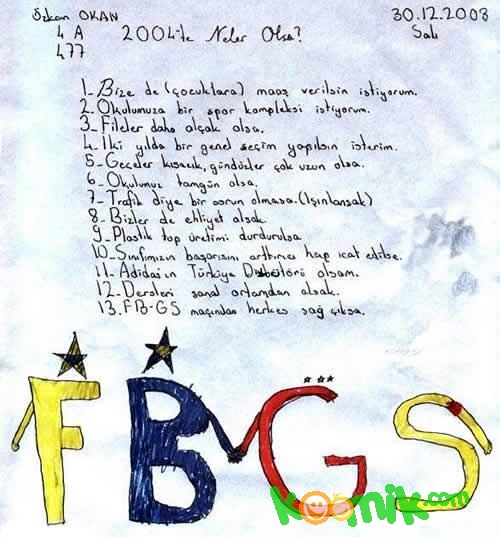 Özkan OKAN
30.12.2003
4 A
2004'te Neler Olsa?
Salı
477
1_Bize de (çocuklara) maaş verilsin istiyorum.
2_Okulumuza bir spor kompleksi istiyorum.
3_Fileler daha alçak olsa.
4_İki yılda bir genel seçim yapılsın isterim.
5_Geceler kısacık, gündüzler çok uzun olsa.
6_Okulumuz tamgün olsa.
7_Trafik diye bir sorun olmasa.(Işınlansak)
8_Bizler de ehliyet alsak.
9_Plastik top üretimi durdurulsa.
10_Sınıfımızın başarısını arttırıcı hap icat edilse.
11_Adidas'ın Türkiye Distribütörü olsam.
12_Dersleri sanal ortamdan alsak.
13.FB-GS maçından herkes sağ çıksa.
FB GS
komik.com